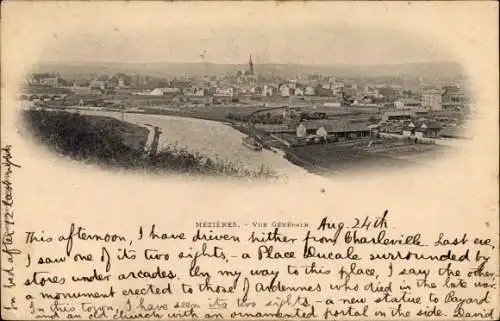 MÉZIÈRES. - VUE GÉNÉRALE
Aug. 24th
This afternoon, I have driven hither from Charleville. Last eve,
I saw one of its two sights, - a Place Ducale surrounded by
stores under arcades. On my way to this place, I saw the other
- a monument erected to those of Ardennes who died in the late war.
In this town, I have seen its two sights, - a new statue to Bayard
and an old church with an ornamented portal on the side. David
In bed after 12 last night